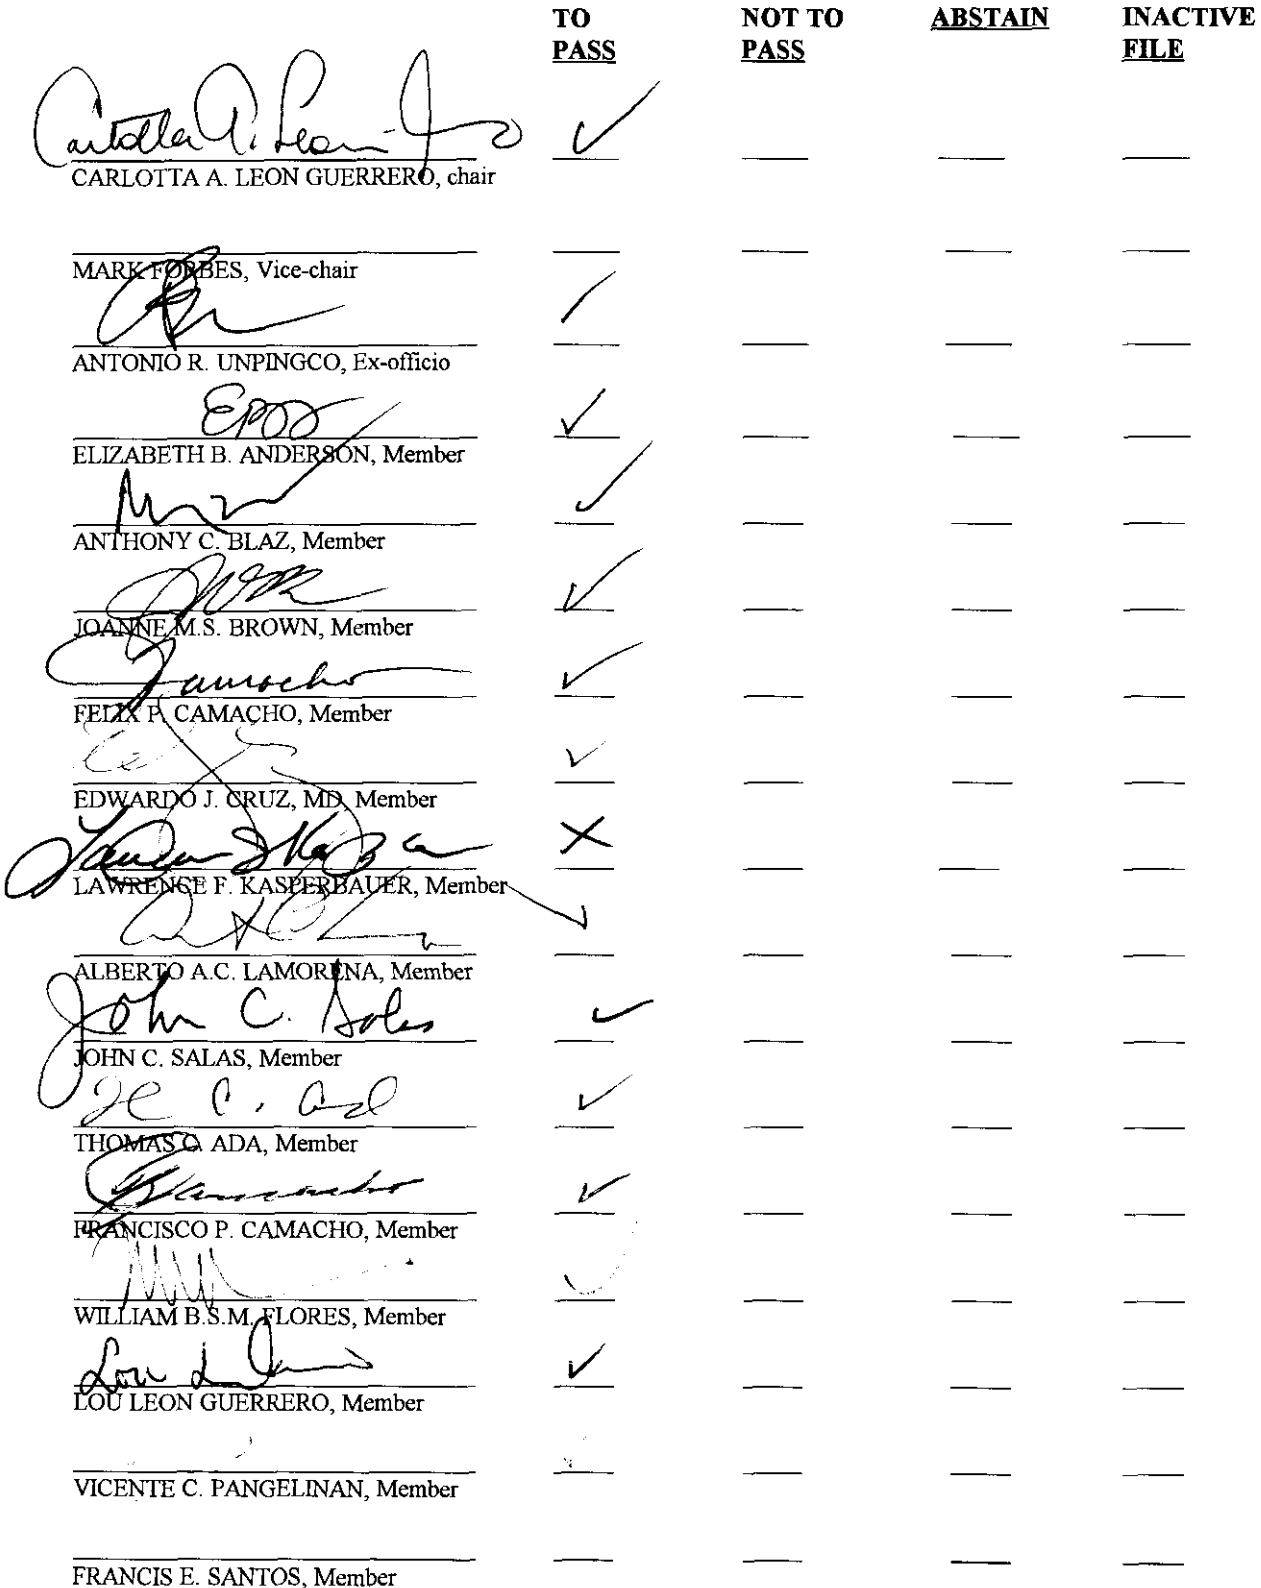 TO NOT TO ABSTAIN INACTIVE
PASS PASS FILE
Carlotta A. Leon
CARLOTTA A. LEON GUERRERO, chair
MARK FORBES, Vice-chair
ANTONIO R. UNPINGCO, Ex-officio
ELIZABETH B. ANDERSON, Member
ANTHONY C. BLAZ, Member
JOANNE M.S. BROWN, Member
Camacho
FELIX P. CAMACHO, Member
EDWARDO J. CRUZ, MD, Member
LAWRENCE F. KASPERBAUER, Member
ALBERTO A.C. LAMORENA, Member
John C. Salas
JOHN C. SALAS, Member
THOMAS C. ADA, Member
Camacho
FRANCISCO P. CAMACHO, Member
WILLIAM B.S.M. FLORES, Member
Lou
LOU LEON GUERRERO, Member
VICENTE C. PANGELINAN, Member
FRANCIS E. SANTOS, Member